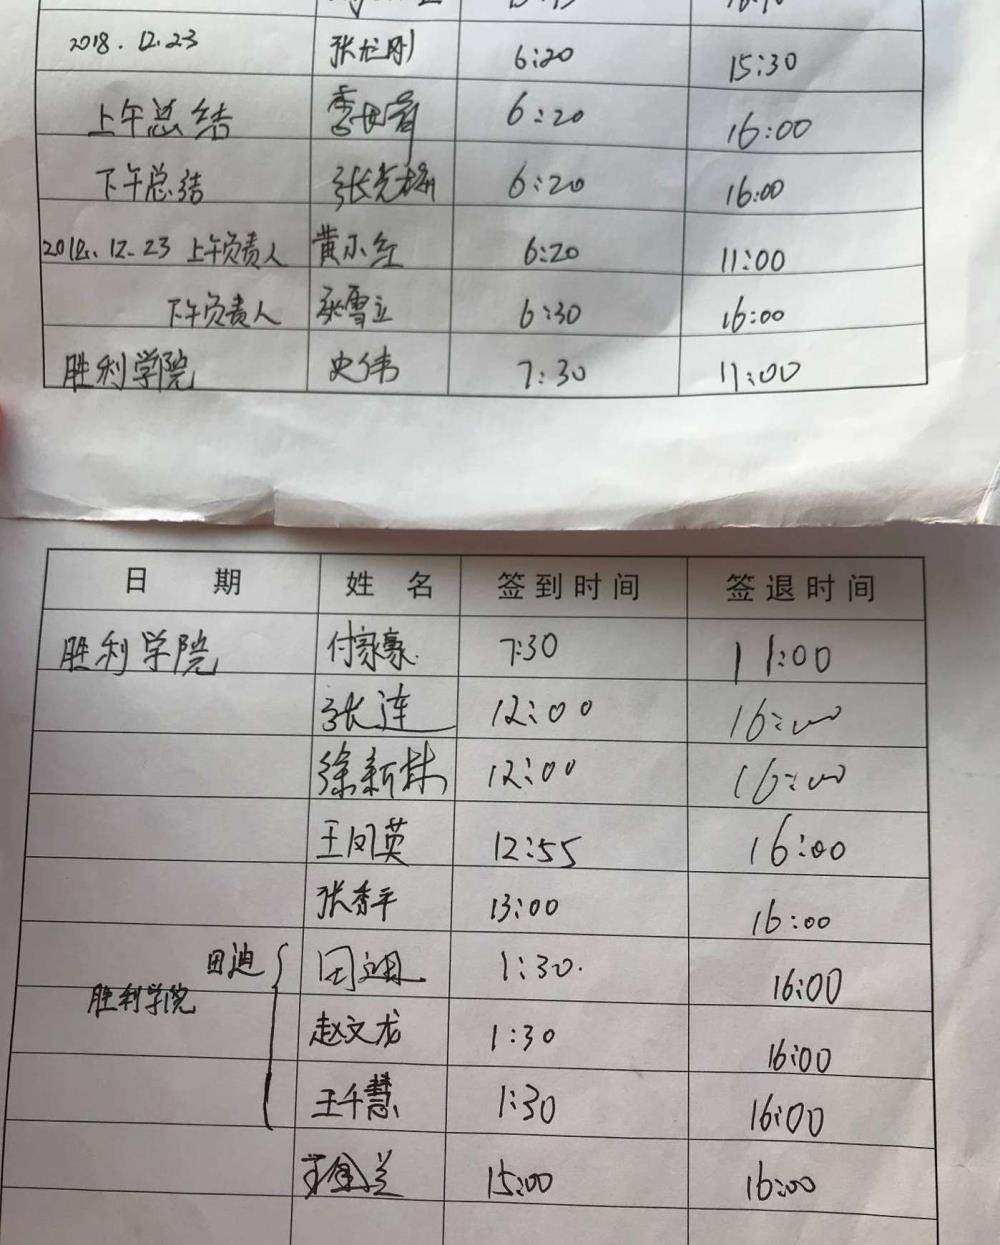 2018.12.23 张龙刚 6:20 15:30
上午总结 6:20 16:00
下午总结 张克梅 6:20 16:00
2018.12.23 上午负责人 黄小红 6:20 11:00
下午负责人 张雪立 6:30 16:00
胜利学院 史伟 7:30 11:00
日期 姓名 签到时间 签退时间
胜利学院 付家豪 7:30 11:00
张莲 12:00 16:00
徐新林 12:00 16:00
王凤英 12:55 16:00
张秀平 13:00 16:00
田迪 1:30. 16:00
胜利学院 赵文龙 1:30 16:00
王千慧 1:30 16:00
15:00 16:00